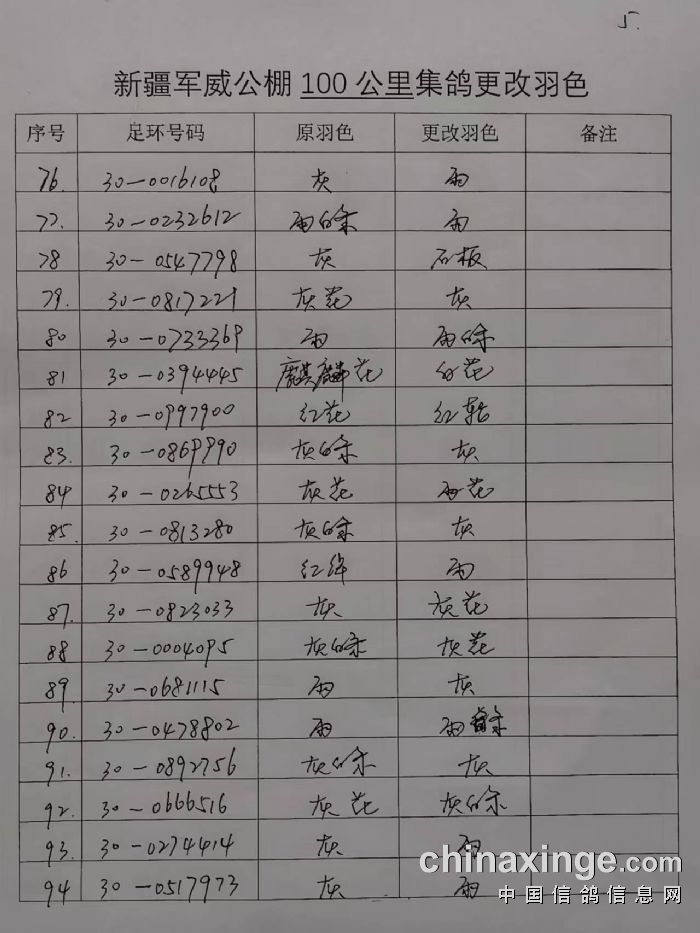 5.
新疆军威公棚 100 公里集鸽更改羽色
序号 足环号码 原羽色 更改羽色 备注
76. 30-0016108 灰 雨
77. 30-0232612 雨白条 雨
78 30-0547798 灰 石板
79. 30-0817221 灰花 灰
80 30-0733369 雨 雨白条
81 30-0394445 麒麟花 白花
82 30-0997900 红花 红轮
83. 30-0869990 灰白条 灰
84 30-0265553 灰花 雨花
85. 30-0813280 灰白条 灰
86 30-0589948 红绛 雨
87. 30-0823033 灰 灰花
88 30-0004095 灰白条 灰花
89 30-0681115 雨 灰
90. 30-0478802 雨 雨白条
91. 30-0892756 灰白条 灰
92. 30-0666516 灰花 灰白条
93. 30-0274414 灰 雨
94 30-0517973 灰 雨
chinaxinge.com
中国信鸽信息网